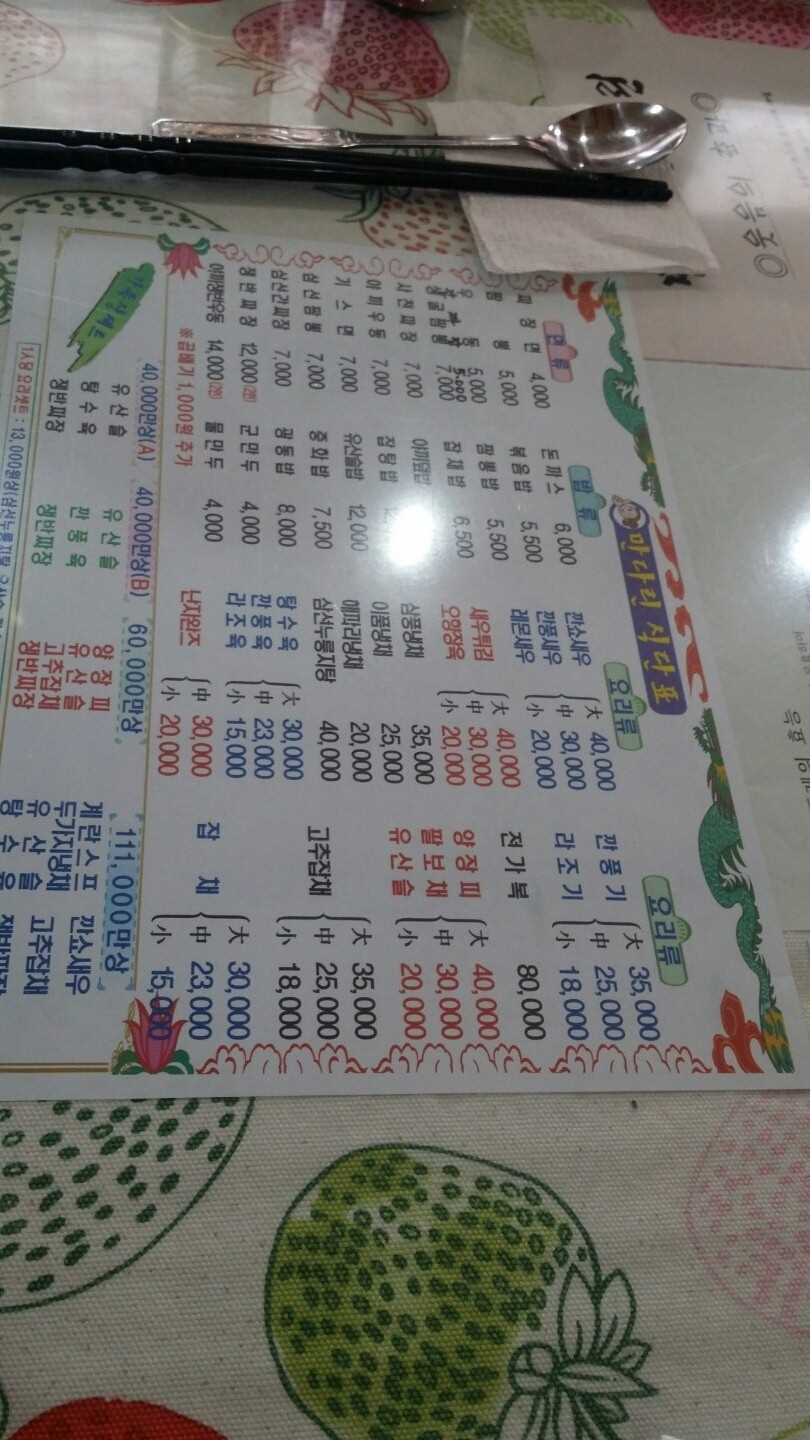 만다린 식단표
면류
짜장면 4,000
짬뽕 5,000
우동 5,000
굴짬뽕 7,000
사천짜장 7,000
야끼우동 7,000
기스면 7,000
삼선짬뽕 7,000
삼선간짜장 7,000
쟁반짜장 12,000(2인)
야끼쟁반우동 14,000(2인)
※곱배기 1,000원 추가
밥류
돈까스 6,000
볶음밥 5,500
짬뽕밥 5,500
잡채밥 6,500
야끼덮밥
잡탕밥
유산슬밥 12,000
중화밥 7,500
광동밥 8,000
군만두 4,000
물만두 4,000
요리류
깐쇼새우
깐풍새우
레몬새우
大 40,000
中 30,000
小 20,000
새우튀김
오향장육
大 40,000
中 30,000
小 20,000
삼품냉채 35,000
이품냉채 25,000
해파리냉채 20,000
삼선누룽지탕 40,000
탕수육
깐풍육
라조육
大 30,000
中 23,000
小 15,000
난자완즈
中 30,000
小 20,000
요리류
깐풍기
라조기
大 35,000
中 25,000
小 18,000
전가복 80,000
양장피
팔보채
유산슬
大 40,000
中 30,000
小 20,000
고추잡채
大 35,000
中 25,000
小 18,000
잡채
大 30,000
中 23,000
小 15,000
40,000만상(A)
유산슬
탕수육
쟁반짜장
40,000만상(B)
유산슬
깐풍육
쟁반짜장
60,000만상
양장피
유산슬
고추잡채
쟁반짜장
111,000만상
계란스프
두가지냉채
유산슬
탕수육
깐쇼새우
고추잡채
쟁반짜장
1人당 요리셋트 : 13,000원상(삼선누룽지탕
◎웃음의 효과◎